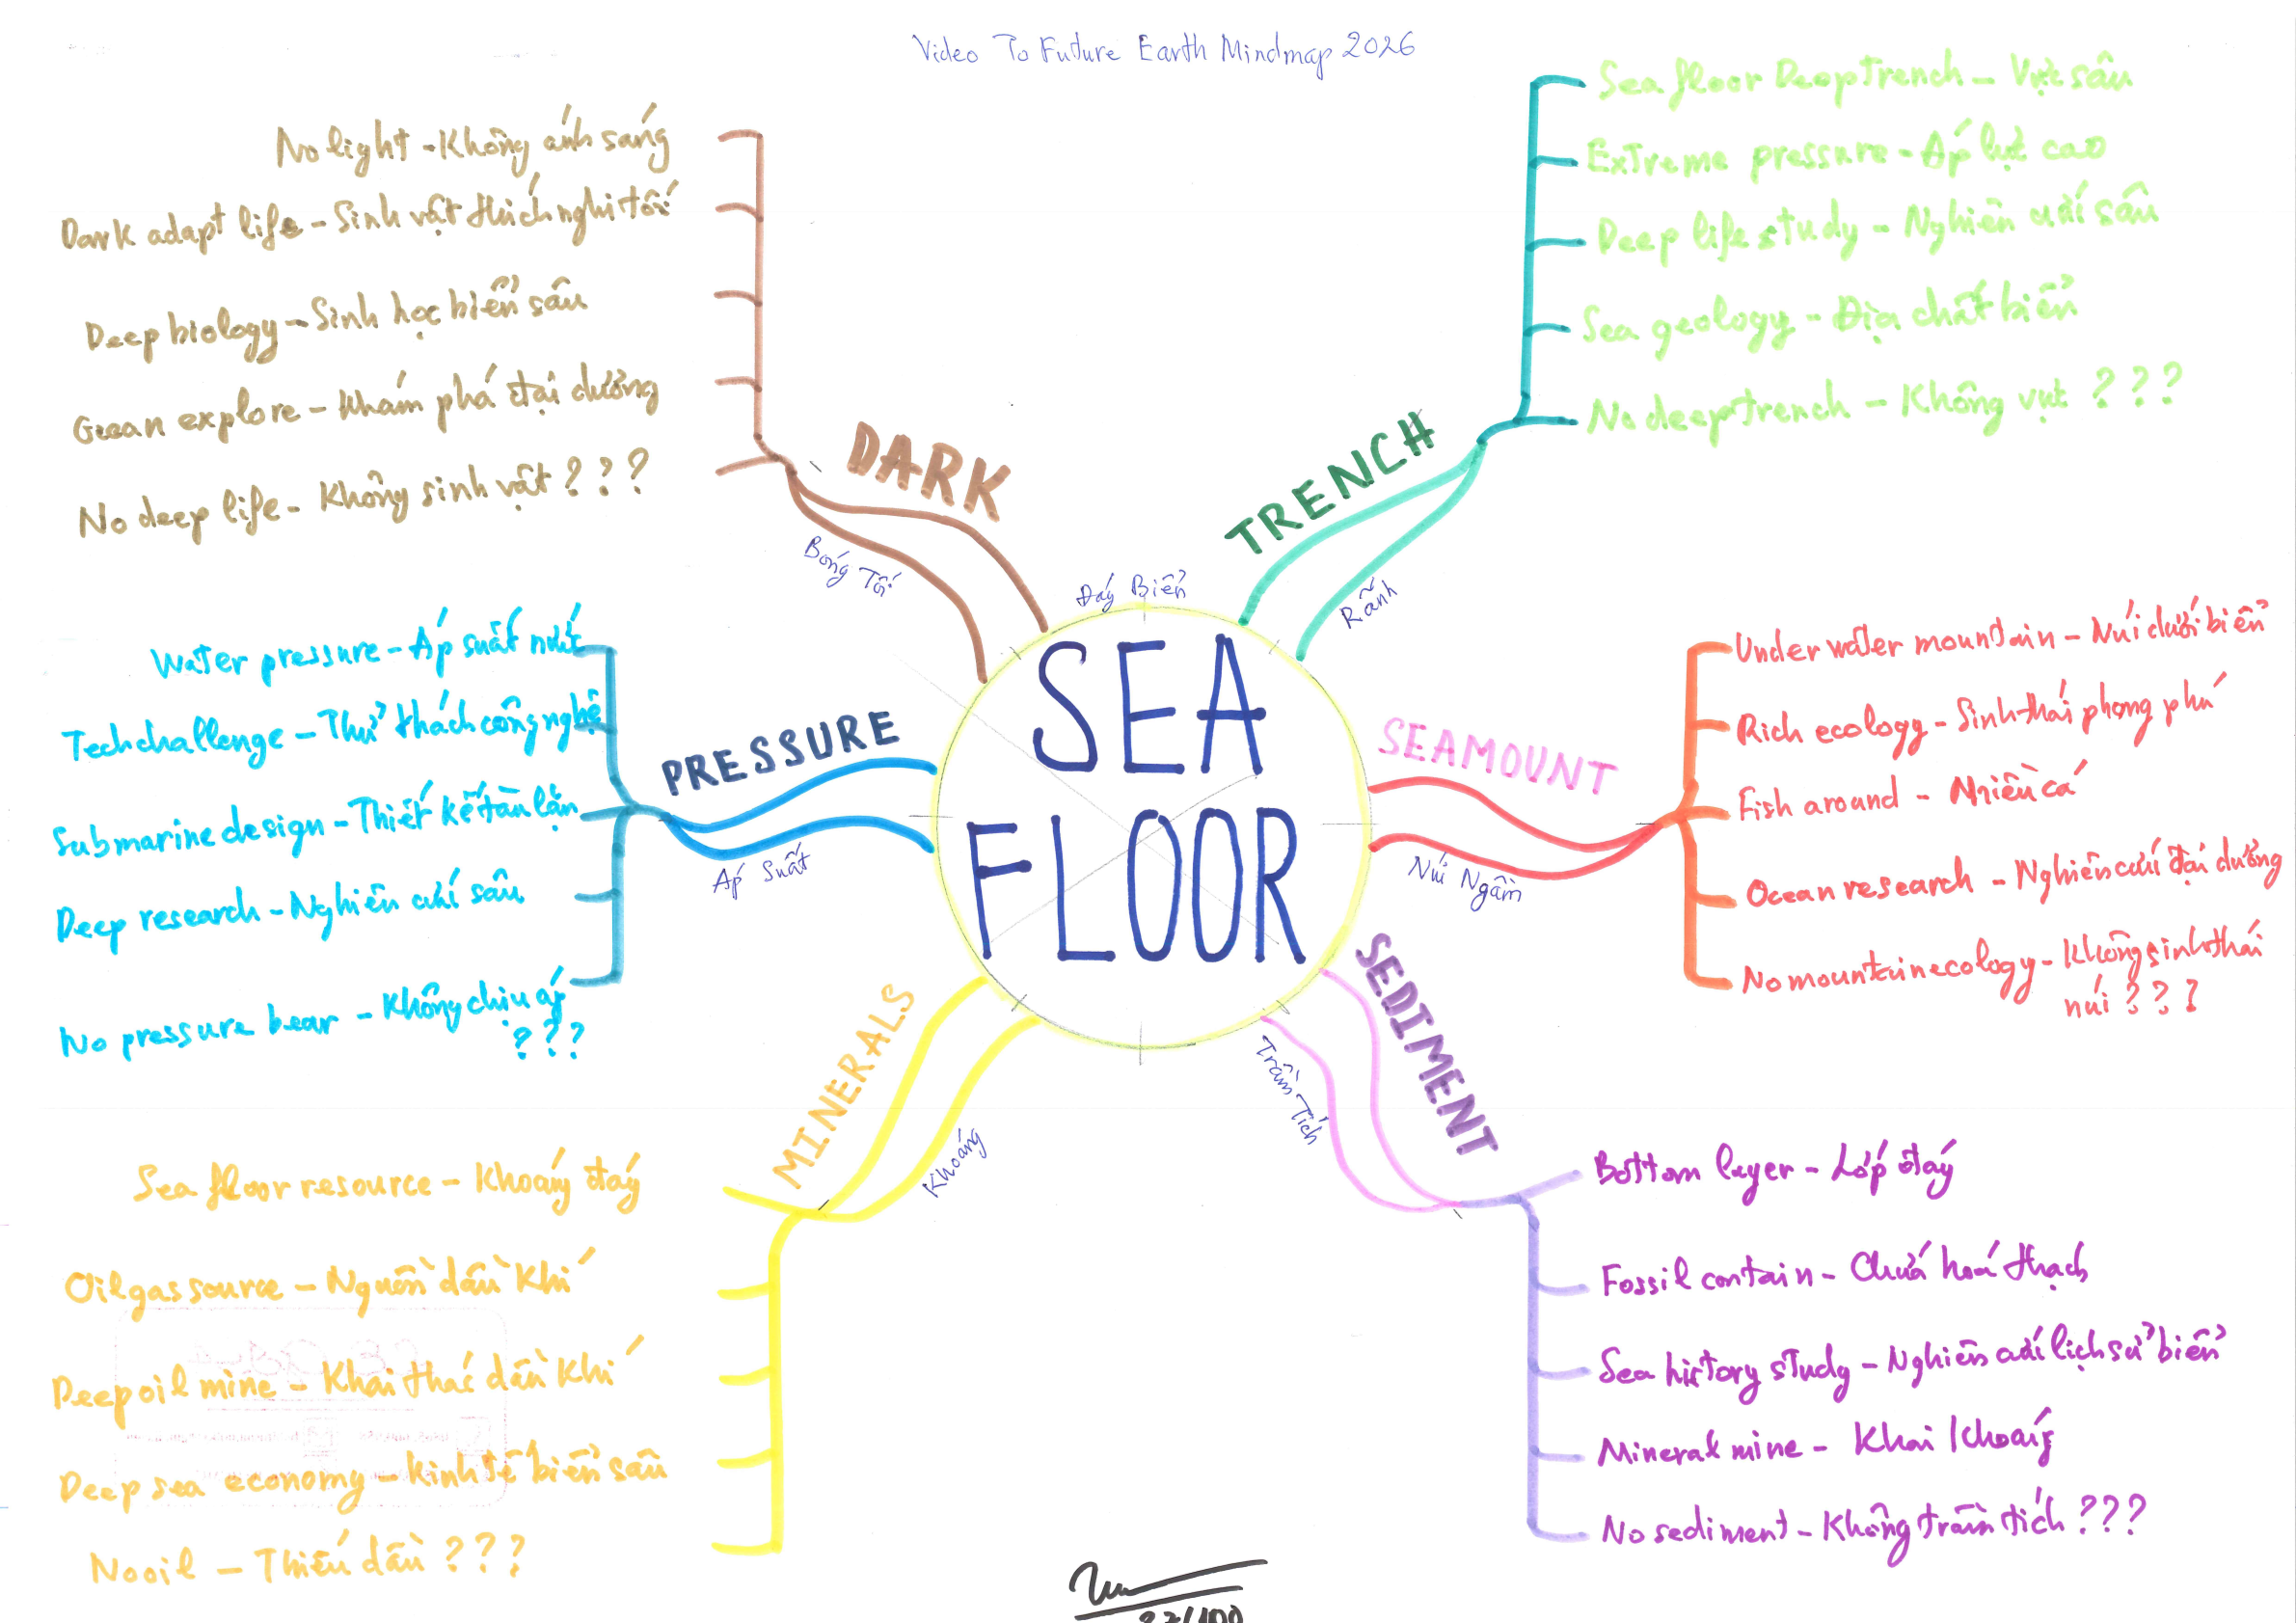 Video To Future Earth Mindmap 2026
Đáy Biển
SEA
FLOOR
TRENCH
Rãnh
Sea floor Deep Trench - Vực sâu
Extreme pressure - Áp lực cao
Deep life study - Nghiên cứu sâu
Sea geology - Địa chất biển
No deep trench - Không vực ???
SEAMOUNT
Núi Ngầm
Under water mountain - Núi dưới biển
Rich ecology - Sinh thái phong phú
Fish around - Nhiều cá
Ocean research - Nghiên cứu đại dương
No mountain ecology - Không sinh thái
núi ???
SEDIMENT
Trầm Tích
Bottom layer - Lớp đáy
Fossil contain - Chứa hoá thạch
Sea history study - Nghiên cứu lịch sử biển
Mineral mine - Khai khoáng
No sediment - Không trầm tích ???
MINERALS
Khoáng
Sea floor resource - Khoáng đáy
Oil gas source - Nguồn dầu khí
Deep oil mine - Khai thác dầu khí
Deep sea economy - Kinh tế biển sâu
No oil - Thiếu dầu ???
PRESSURE
Áp Suất
Water pressure - Áp suất nước
Tech challenge - Thử thách công nghệ
Submarine design - Thiết kế tàu lặn
Deep research - Nghiên cứu sâu
No pressure bear - Không chịu áp
???
DARK
Bóng Tối
No light - Không ánh sáng
Dark adapt life - Sinh vật thích nghi tối
Deep biology - Sinh học biển sâu
Ocean explore - Khám phá đại dương
No deep life - Không sinh vật ???